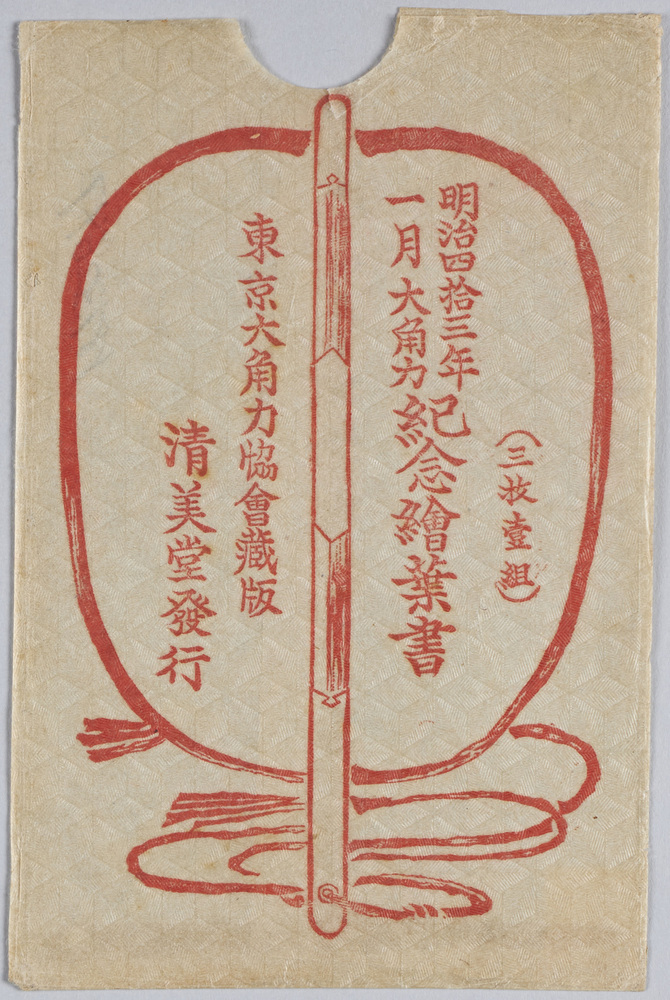 （三枚壹組）
明治四拾三年
一月大角力紀念繪葉書
東京大角力協會藏版
清美堂發行